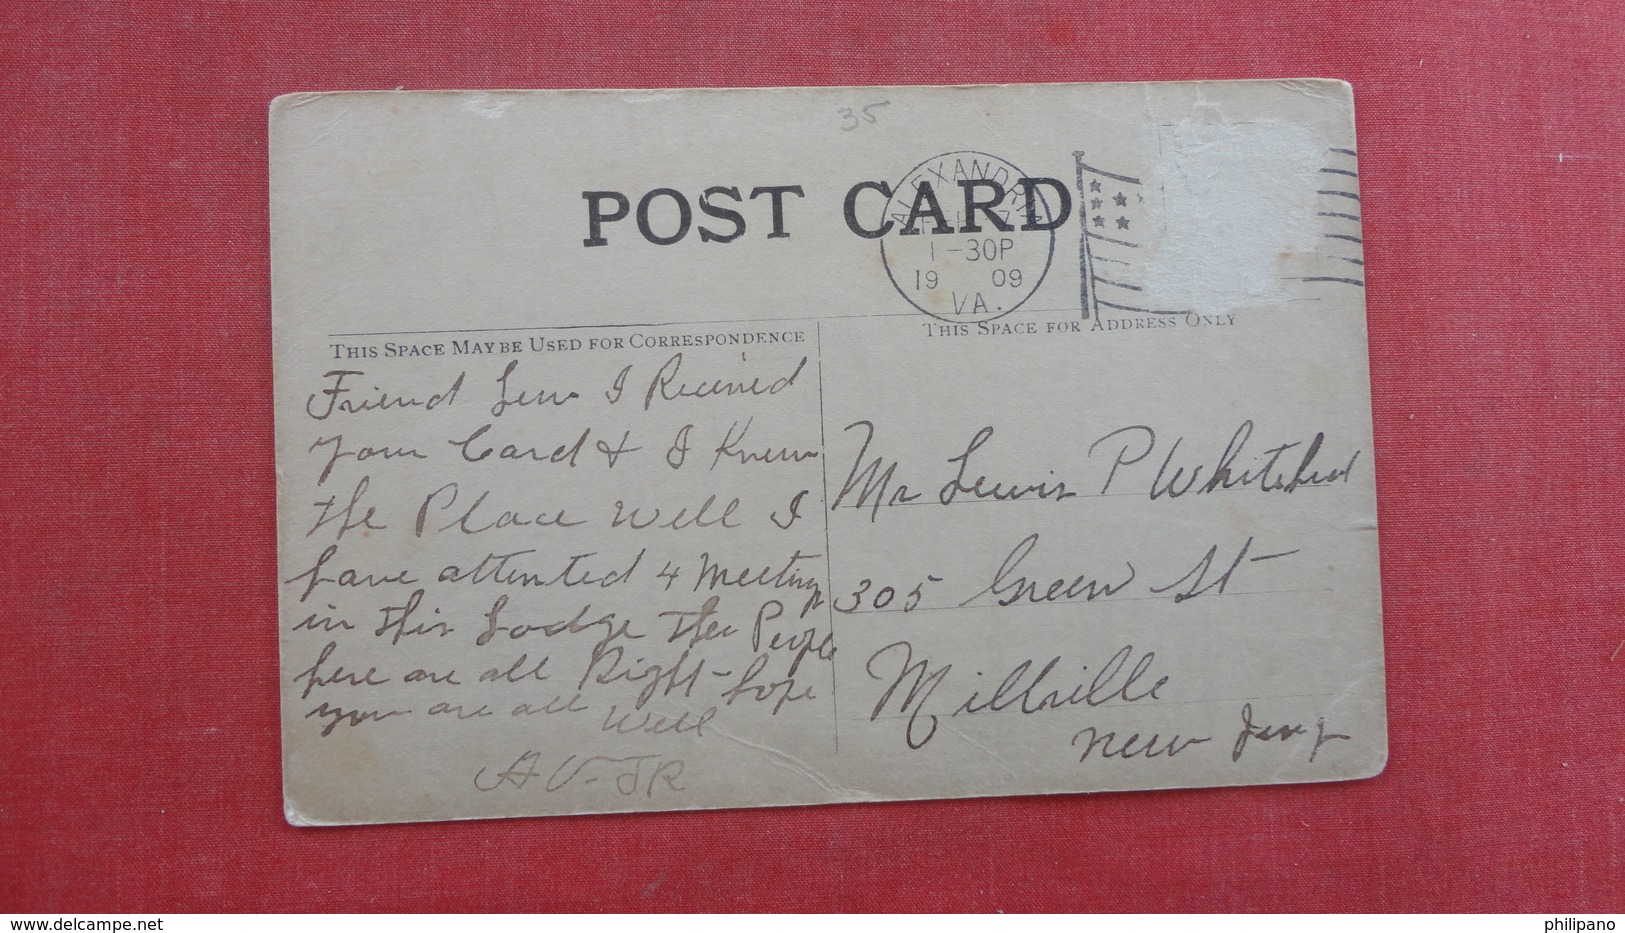 35
POST CARD
ALEXANDRIA
1-30P
19 09
VA.
THIS SPACE MAY BE USED FOR CORRESPONDENCE
THIS SPACE FOR ADDRESS ONLY
Friend Lew I Received
your Card & I Knew
the Place well I
have attented 4 Meetings
in this Lodge the People
here are all Right - hope
you are all well
A V - JR
Mr Lewis P Whitehead
305 Green St
Millville
New Jersy
delcampe.net
philipano